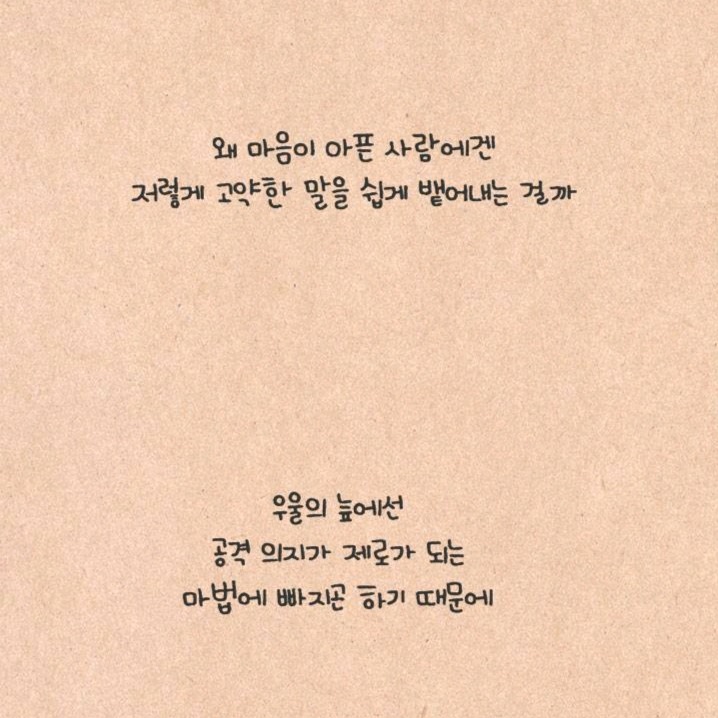 왜 마음이 아픈 사람에겐
저렇게 고약한 말을 쉽게 뱉어내는 걸까
우울의 늪에선
공격 의지가 제로가 되는
마법에 빠지곤 하기 때문에